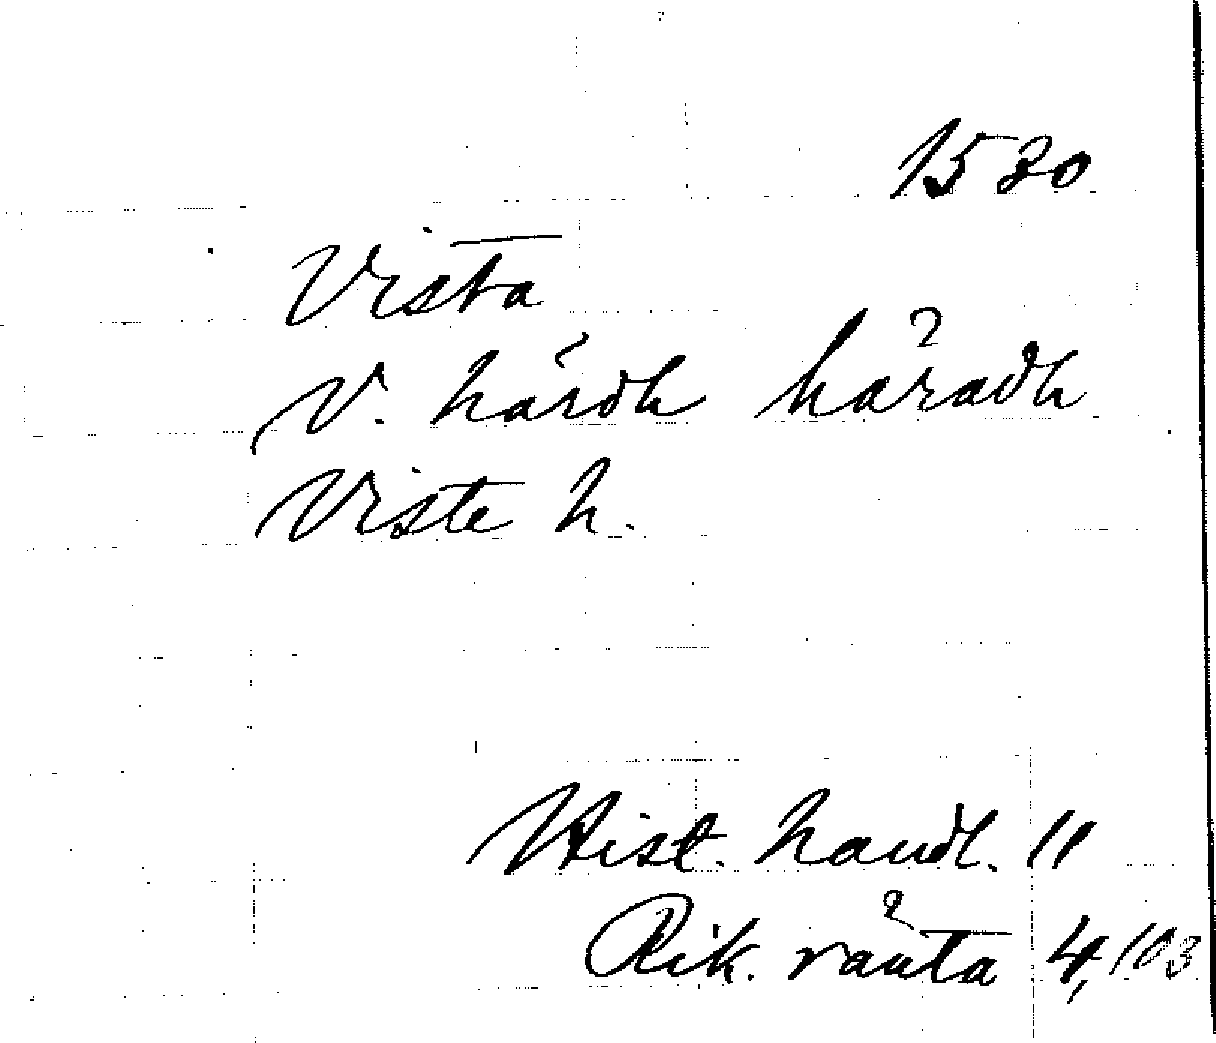 1530
Vista
V. härdh häradh
Viste h.
Hist. handl. 11
Rik. ränta 4, 103